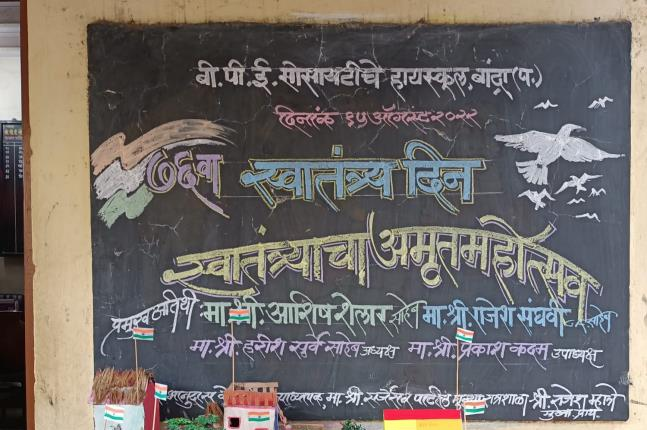 बी.पी.ई. सोसायटीचे हायस्कूल, बांद्रा (प.)
दिनांक १५ ऑगस्ट २०२२
७६वा स्वातंत्र्य दिन
स्वातंत्र्याचा अमृतमहोत्सव
प्रमुख अतिथी मा.श्री. आशिष शेलार साहेब मा.श्री. राजेश संघवी साहेब
मा.श्री. हरीश सुर्वे साहेब अध्यक्ष मा.श्री. प्रकाश कदम उपाध्यक्ष
मा.श्री. पाटील श्री. राजेश म्हात्रे